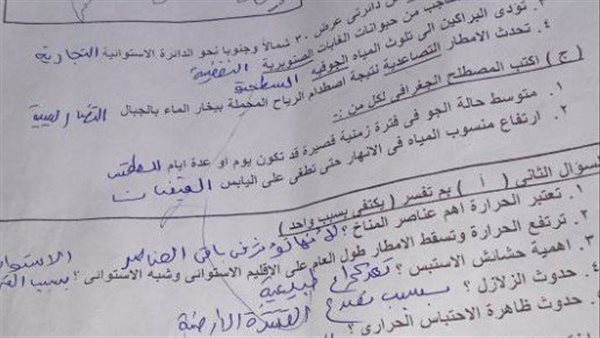 دائرتى عرض ٣٠ شمالاً وجنوبا نحو الدائرة الاستوائية التجارية
من حيوانات الغابات الصنوبرية النفضية
تؤدى البراكين الى تلوث المياه الجوفيه السطحية
٤. تحدث الامطار التصاعدية نتيجة اصطدام الرياح المحملة ببخار الماء بالجبال التضاريسية
( ج ) اكتب المصطلح الجغرافى لكل من :-
١. متوسط حالة الجو فى فترة زمنية قصيرة قد تكون يوم او عدة ايام الطقس
٢. ارتفاع منسوب المياه فى الانهار حتى تطغى على اليابس الفيضانات
السؤال الثانى ( أ ) بم تفسر ( يكتفى بسبب واحد )
١. تعتبر الحرارة اهم عناصر المناخ ؟ لأنها تؤثر فى باقى العناصر
٢. ترتفع الحرارة وتسقط الامطار طول العام على الاقليم الاستوائى وشبه الاستوائى ؟ بسبب
٣. اهمية حشائش الاستبس ؟ كمراعى طبيعية
٤. حدوث الزلازل ؟ بسبب تصدع القشرة الارضية
حدوث ظاهرة الاحتباس الحرارى ؟